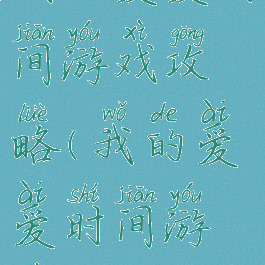 jiān yóu xì gōng
间游戏攻
lüè wǒ de ài
略(我的爱
ài shí jiān yóu
爱时间游